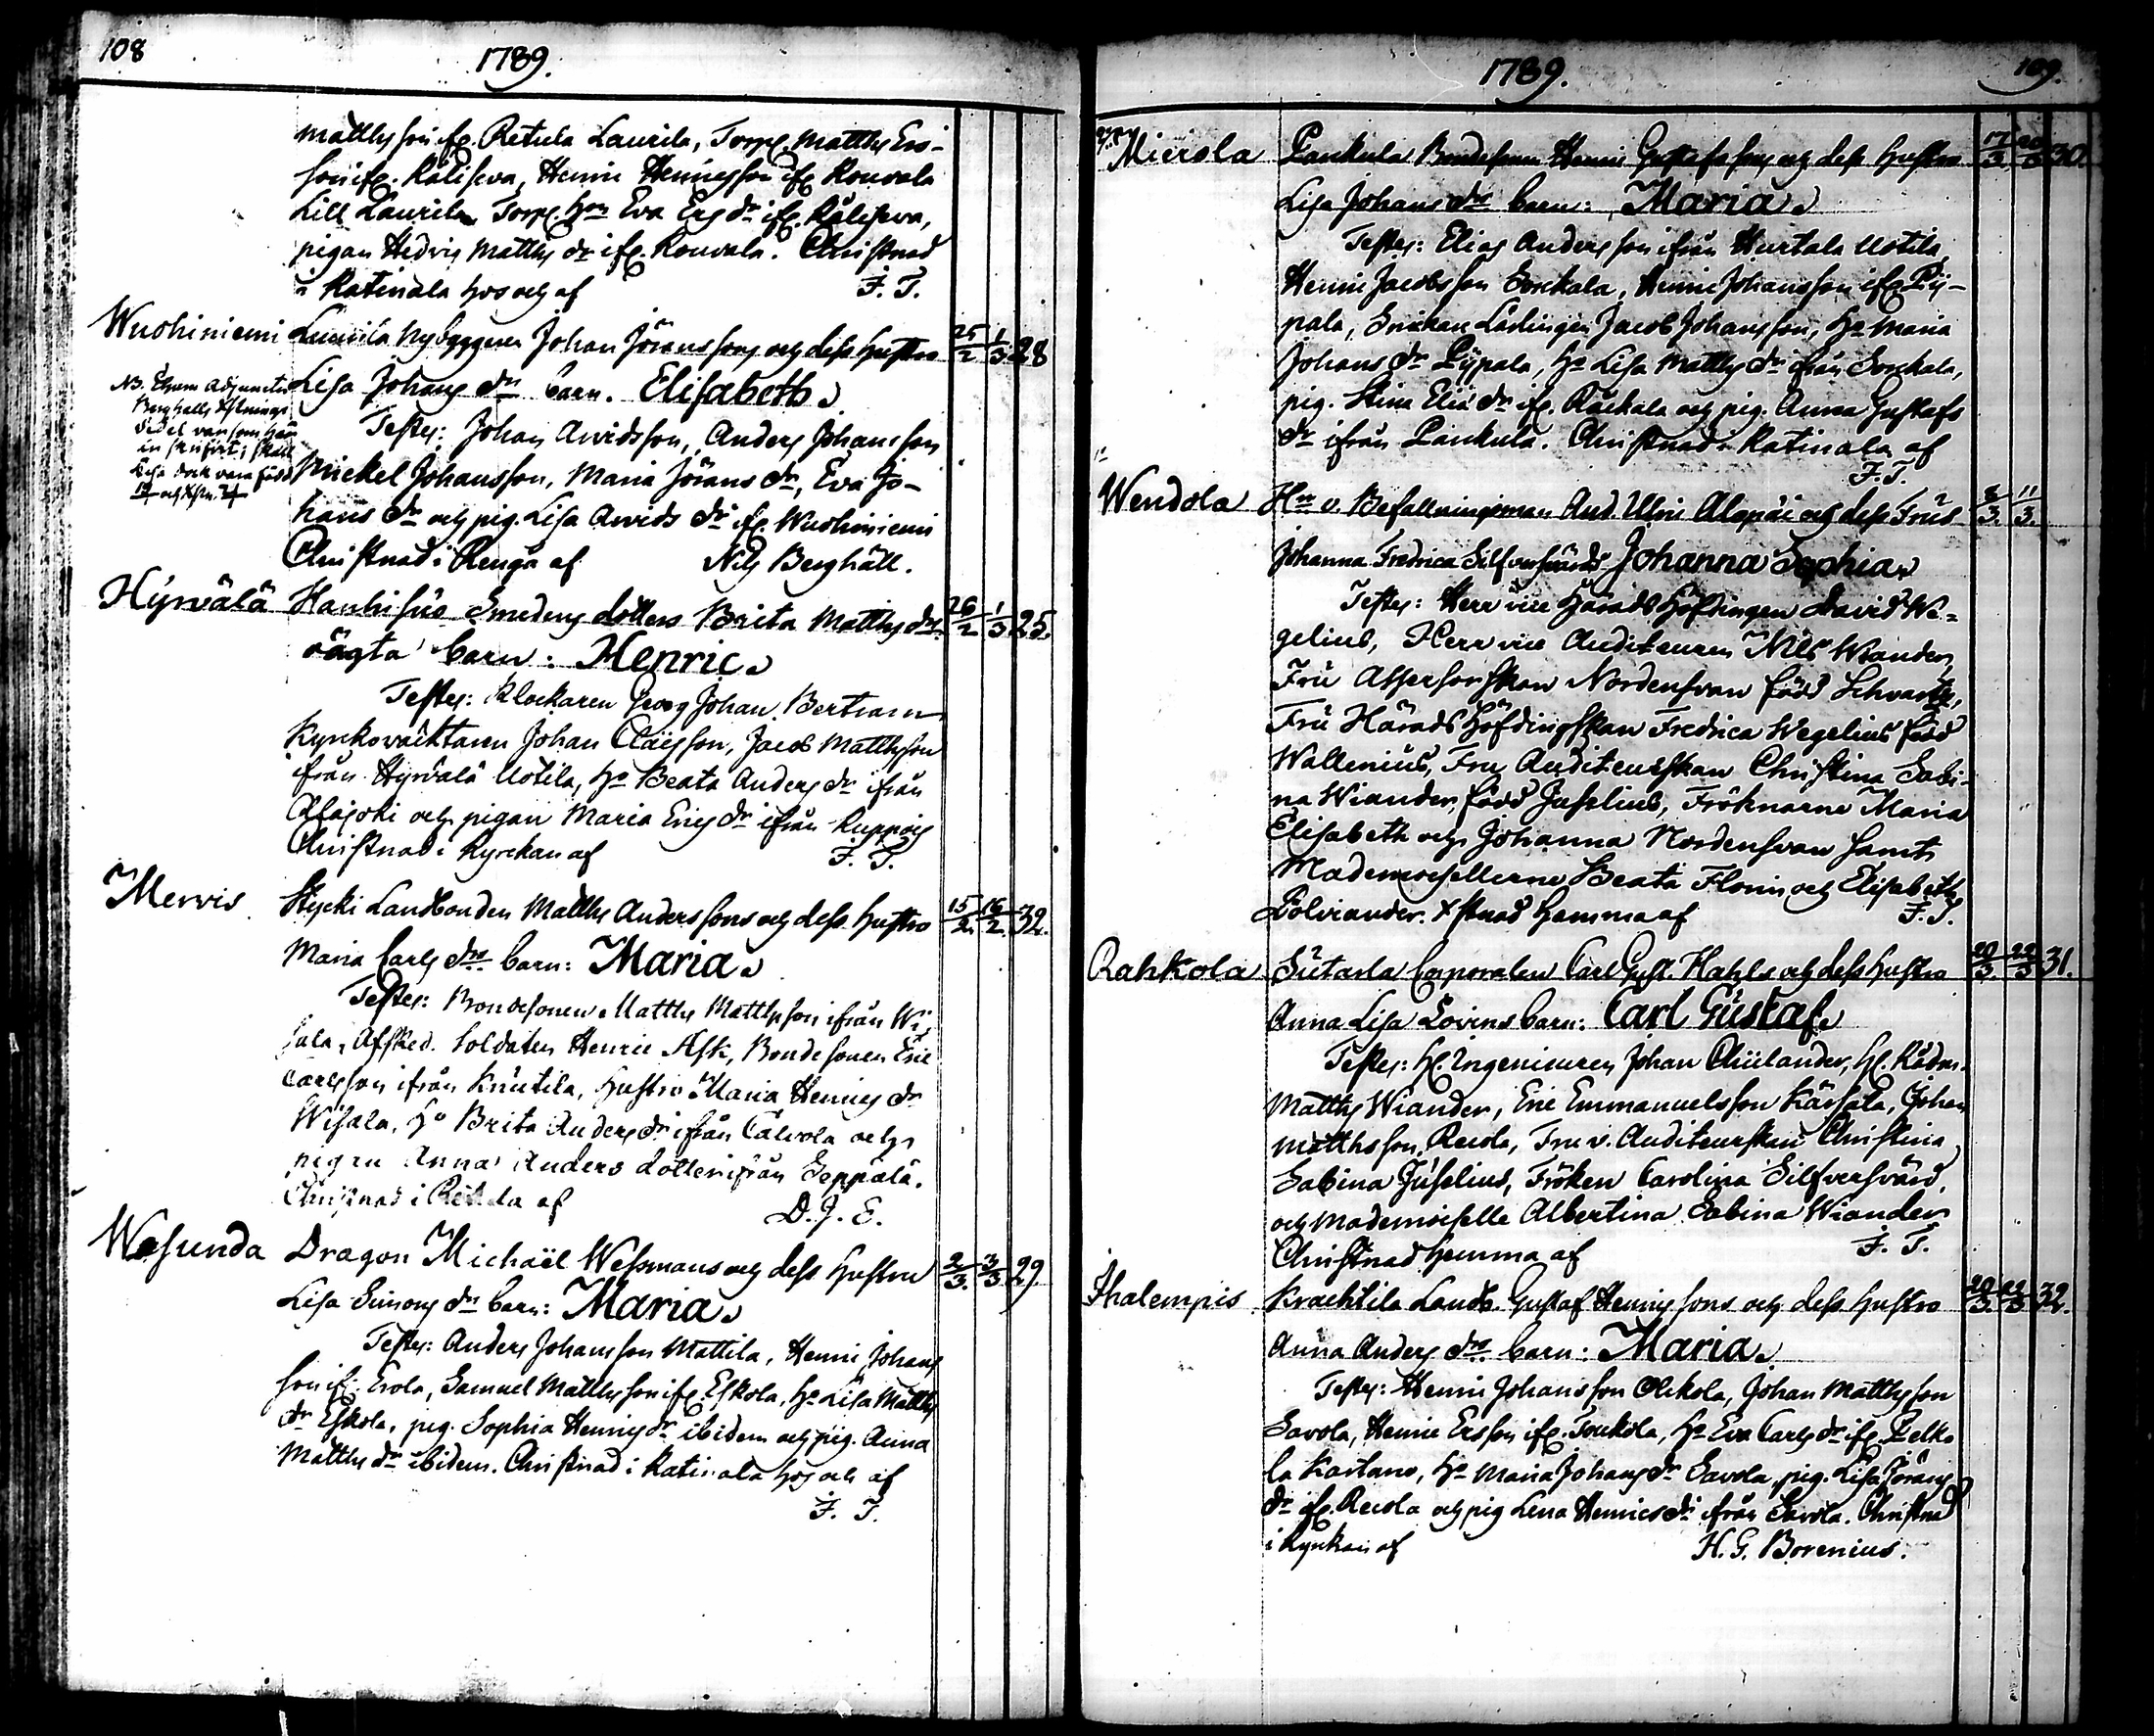 108
1789.
Matthsson ifr. Retula Laurila, Torp. Matths Ers-
son ifr. Kåliseva, Henric Henricsson ifr. Rouvala
Lill Laurila Torp. Hon Eva Ers dr ifr. Kåliseva,
pigan Hedvig Matths dr ifr. Rouvala. Christnad
i Katinala hos och af F. T.
Wuohiniemi Laurila Nybyggaren Johan Jöranssons och dess hustro 25/2 1/3 28
Lisa Johans drs barn. Elisabeth.
NB. Ehrom Adjuncten
Berghälls Xstnings
sedel var som här
införts; skall
dock vara född
Testes: Johan Arvidsson, Anders Johansson
Mickel Johansson, Maria Jörans dr, Eva Jo-
hans dr och pig. Lisa Arvids dr ifr. Wuohiniemi
Christnad i Renga af Nils Berghäll.
Hyrvälä Hanhisuo Smedens dotters Brita Matths drs 26/2 1/3 25.
oägta barn: Henric.
Testes: Klockaren Georg Johan Bertram
Kyrckoväcktaren Johan Claësson, Jacob Matthsson
ifrån Hyrvälä Uotila, ho Beata Anders dr ifrån
Alajoki och pigan Maria Erics dr ifrån Kuppois
Christnad i Kyrckan af F. T.
Mervis Stycki Landbonden Matths Anderssons och dess hustro 15/2 16/2 32.
Maria Carls drs barn: Maria.
Testes: Bondesonen Matths Matthsson ifrån Wi-
sala, Afsked. Soldaten Henric Ask, Bondesonen Eric
Carlsson ifrån Knutila, hustro Maria Henrics dr
Wisala, ho Brita Anders dr ifrån Calvola och
pigan Anna Anders dotter ifrån Seppälä.
Christnad i Retula af D. J. E.
Wesunda Dragon Michaël Wessmans och dess hustro 2/3 3/3 29.
Lisa Simons drs barn: Maria.
Testes: Anders Johansson Mattila, Henric Johans
son ifr. Erola, Samuel Matthsson ifr. Eskola, ho Lisa Matths
dr Eskola, pig. Sophia Henrics dr ibidem och pig. Anna
Matths dr ibidem. Christnad i Katinala hos och af
F. T.
1789.
109.
Mierola Pankula Bondesonen Henric Gustafssons och dess hustro 17/3 20/3 30.
Lisa Johans drs barn: Maria.
Testes: Elias Andersson ifrån Hurtala Uotila
Henric Jacobsson Sorckala, Henric Johansson ifr. Py-
pala, Snickare Lärlingen Jacob Johansson, ho Maria
Johans dr Pypala, ho Lisa Matths dr ifrån Sorckala,
pig. Stina Eliæ dr ifr. Räckala och pig. Anna Gustafs
dr ifrån Pankula. Christnad i Katinala af
F. T.
Wendola Hrr v. Befallningsman And. Ulric Alopæi och dess Frus 8/3. 11/3.
Johanna Fredrica Silfversvärds Johanna Sophia.
Testes: Herr vice Häradshöfdingen David We-
gelius, Herr vice Auditeuren Nils Wiander,
Fru Assessorskan Nordensvan född Schvartz,
Fru Härads Höfdingskan Fredrica Wegelius född
Wallenius, Fru Auditeurskan Christina Sabi-
na Wiander, född Juselius, Fröknarne Maria
Elisabeth och Johanna Nordensvan samt
Mademoisellerne Beata Florin och Elisabeth
Polviander. Xstnad hemma af F. T.
Rahkola Sutarla Corporalen Carl Gust. Hahls och dess hustro 20/3. 22/3 31.
Anna Lisa Lovins barn: Carl Gustaf.
Testes: H. Ingenieuren Johan Chiulander, H. Rådm.
Matths Wiander, Eric Emmanuelsson Kärsala, Johan
Matthsson Reiola, Fru v. Auditeurskan Christina
Sabina Juselius, Fröken Carolina Silfversvärd,
och Mademoiselle Albertina Sabina Wiander
Christnad hemma af F. T.
Ihalempis Kraehtila Landb. Gustaf Henricssons och dess hustro 20/3. 22/3 32.
Anna Anders drs barn: Maria.
Testes: Henric Johansson Olckola, Johan Matthsson
Savola, Henric Ersson ifr. Touckola, Ho Eva Carls dr ifr. Pelko
la Kartano, Ho Maria Johans dr Savola, pig. Lisa Jörans
dr ifr. Reiola och pig Lena Henrics dr ifrån Savola. Christnad
i Kyrckan af H. G. Borenius.